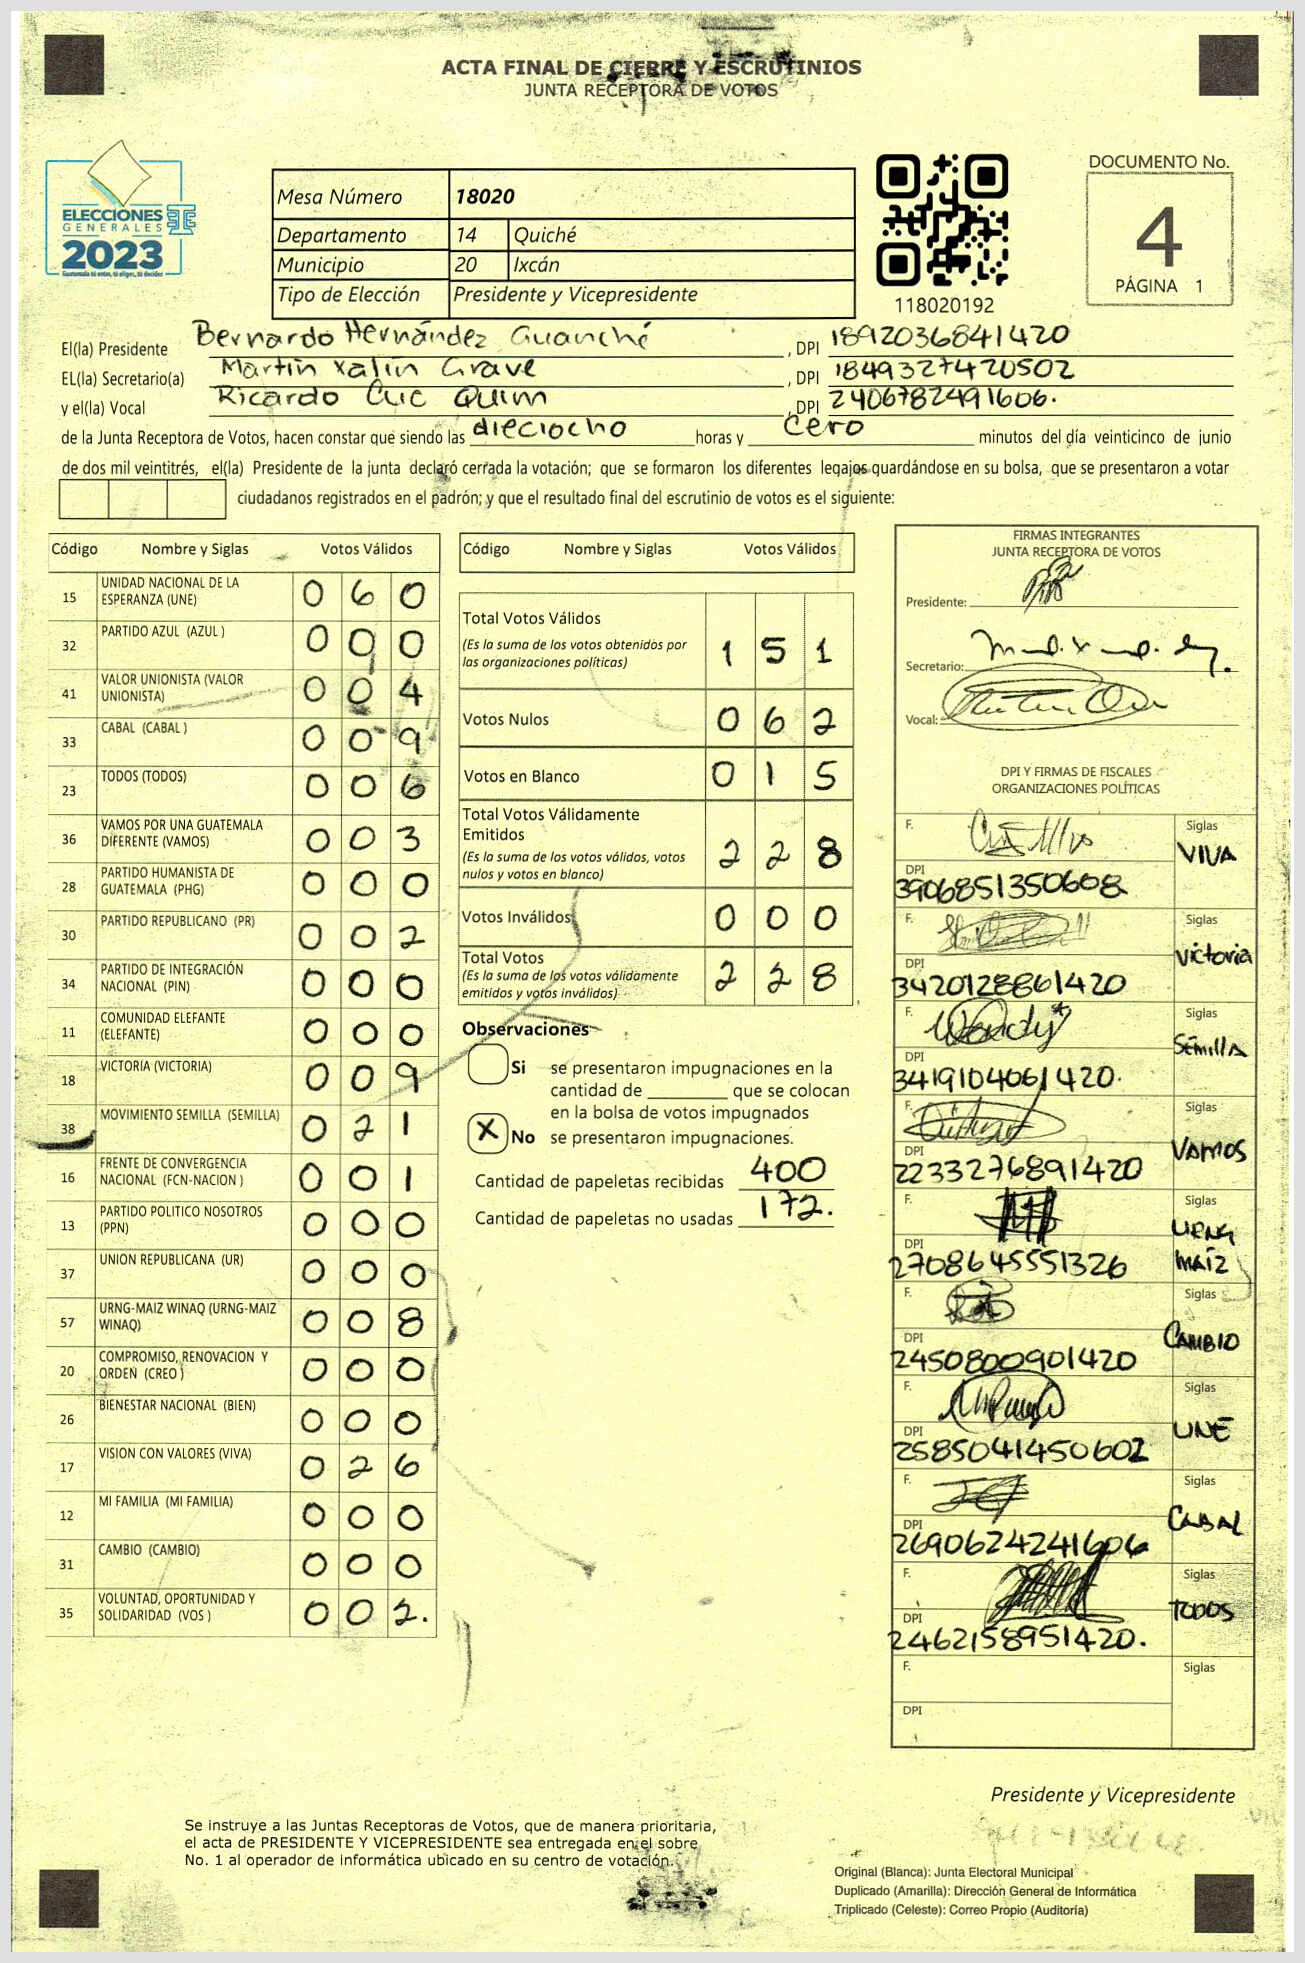 ACTA FINAL DE CIERRE Y ESCRUTINIOS
JUNTA RECEPTORA DE VOTOS
ELECCIONES
GENERALES
2023
Guatemala tú entras, tú eliges, tú decides
Mesa Número 18020
Departamento 14 Quiché
Municipio 20 Ixcán
Tipo de Elección Presidente y Vicepresidente
118020192
DOCUMENTO No.
4
PÁGINA 1
El(la) Presidente Bernardo Hernández Guanché , DPI 1892036841420
EL(la) Secretario(a) Martín Xalin Grave , DPI 1849327420502
y el(la) Vocal Ricardo Cuc Quim , DPI 2406782491606.
de la Junta Receptora de Votos, hacen constar que siendo las dieciocho horas y cero minutos del día veinticinco de junio
de dos mil veintitrés, el(la) Presidente de la junta declaró cerrada la votación; que se formaron los diferentes legajos guardándose en su bolsa, que se presentaron a votar
ciudadanos registrados en el padrón; y que el resultado final del escrutinio de votos es el siguiente:
Código Nombre y Siglas Votos Válidos
15 UNIDAD NACIONAL DE LA ESPERANZA (UNE) 0 6 0
32 PARTIDO AZUL (AZUL ) 0 0 0
41 VALOR UNIONISTA (VALOR UNIONISTA) 0 0 4
33 CABAL (CABAL ) 0 0 9
23 TODOS (TODOS) 0 0 6
36 VAMOS POR UNA GUATEMALA DIFERENTE (VAMOS) 0 0 3
28 PARTIDO HUMANISTA DE GUATEMALA (PHG) 0 0 0
30 PARTIDO REPUBLICANO (PR) 0 0 2
34 PARTIDO DE INTEGRACIÓN NACIONAL (PIN) 0 0 0
11 COMUNIDAD ELEFANTE (ELEFANTE) 0 0 0
18 VICTORIA (VICTORIA) 0 0 9
38 MOVIMIENTO SEMILLA (SEMILLA) 0 2 1
16 FRENTE DE CONVERGENCIA NACIONAL (FCN-NACION ) 0 0 1
13 PARTIDO POLITICO NOSOTROS (PPN) 0 0 0
37 UNION REPUBLICANA (UR) 0 0 0
57 URNG-MAIZ WINAQ (URNG-MAIZ WINAQ) 0 0 8
20 COMPROMISO, RENOVACION Y ORDEN (CREO ) 0 0 0
26 BIENESTAR NACIONAL (BIEN) 0 0 0
17 VISION CON VALORES (VIVA) 0 2 6
12 MI FAMILIA (MI FAMILIA) 0 0 0
31 CAMBIO (CAMBIO) 0 0 0
35 VOLUNTAD, OPORTUNIDAD Y SOLIDARIDAD (VOS ) 0 0 2.
Código Nombre y Siglas Votos Válidos
Total Votos Válidos 1 5 1
(Es la suma de los votos obtenidos por
las organizaciones políticas)
Votos Nulos 0 6 2
Votos en Blanco 0 1 5
Total Votos Válidamente
Emitidos 2 2 8
(Es la suma de los votos válidos, votos
nulos y votos en blanco)
Votos Inválidos 0 0 0
Total Votos 2 2 8
(Es la suma de los votos válidamente
emitidos y votos inválidos)
Observaciones
Si se presentaron impugnaciones en la
cantidad de ________ que se colocan
en la bolsa de votos impugnados
X No se presentaron impugnaciones.
Cantidad de papeletas recibidas 400
Cantidad de papeletas no usadas 172.
FIRMAS INTEGRANTES
JUNTA RECEPTORA DE VOTOS
Presidente:
Secretario:
Vocal:
DPI Y FIRMAS DE FISCALES
ORGANIZACIONES POLÍTICAS
F. Siglas VIVA
DPI 3906851350608
F. Siglas Victoria
DPI 3420128861420
F. Wendy Siglas Semilla
DPI 3419104061420.
F. Siglas VAMOS
DPI 2233276891420
F. Siglas URNG MAÍZ
DPI 2708645551326
F. Siglas CAMBIO
DPI 2450800901420
F. Siglas UNE
DPI 2585041450602
F. Siglas CABAL
DPI 2690624241606
F. Siglas TODOS
DPI 2462158951420.
F. Siglas
DPI
Presidente y Vicepresidente
Se instruye a las Juntas Receptoras de Votos, que de manera prioritaria,
el acta de PRESIDENTE Y VICEPRESIDENTE sea entregada en el sobre
No. 1 al operador de informática ubicado en su centro de votación.
Original (Blanca): Junta Electoral Municipal
Duplicado (Amarilla): Dirección General de Informática
Triplicado (Celeste): Correo Propio (Auditoría)